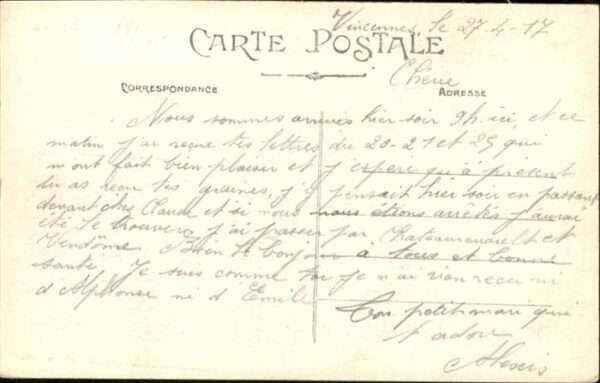 Vincennes, le 27-4-17
CARTE POSTALE
Chère
CORRESPONDANCE
ADRESSE
Nous sommes arrivés hier soir 9h ici, et ce
matin j'ai reçue tes lettres du 20-21 et 25 qui
m ont fait bien plaisir et j'espère qu'à présent
tu as reçu tes graines, j'y pensait hier soir en passant
devant chez Claude et si nous nous étions arrêtés j'aurai
été le trouver, j'ai passer par Chateaurenault et
Vendôme. Bien le bonjour à tous et bonne
santé. Je suis comme toi je n'ai rien reçu ni
d'Alphonse ni d'Emile
Ton petit mari qui
t'adore
Alexis